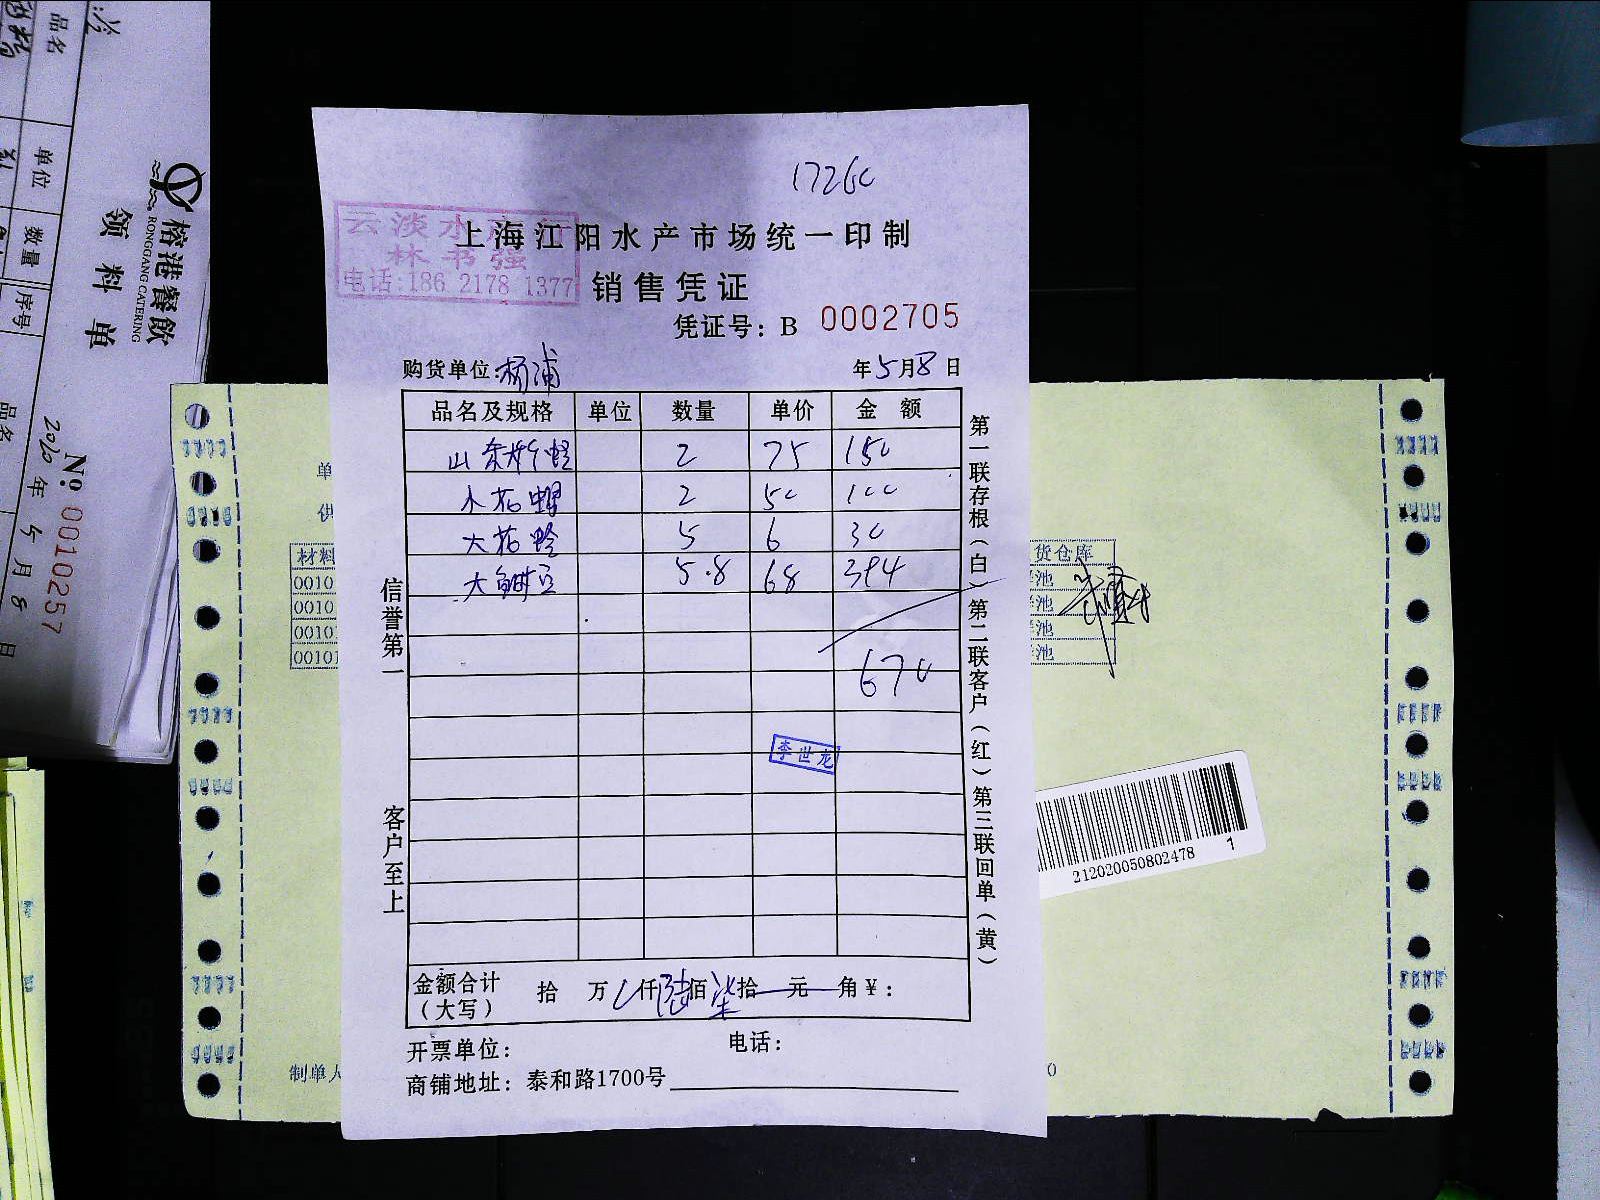 17260
云淡水产行
林书强
电话:186 2178 1377
上海江阳水产市场统一印制
销售凭证
凭证号：B 0002705
购货单位:杨浦 年5月8日
品名及规格 单位 数量 单价 金额
山东 蛏 2 75 150
小花螺 2 50 100
大花蛤 5 6 30
大 5.8 68 394
670
李世龙
金额合计（大写） 拾 万 仟陆佰柒拾 元 角￥：
开票单位： 电话：
商铺地址：泰和路1700号
信誉第一 客户至上
第一联存根（白）第二联客户（红）第三联回单（黄）
榕港餐飲
RONGGANG CATERING
领料单
品名 单位 数量 序号
品名
2020年5月8日
№ 0010257
单
供
材料
0010
0010
0010
00101
货仓库
池
池
池
池
制单人
0
212020050802478 1